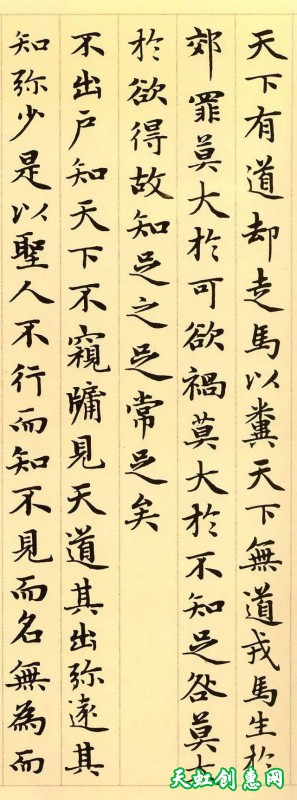 天下有道却走馬以糞天下無道戎馬生於
郊罪莫大於可欲禍莫大於不知足咎莫大
於欲得故知足之足常足矣
不出戶知天下不窺牖見天道其出弥遠其
知弥少是以聖人不行而知不見而名無為而
天虹创惠网